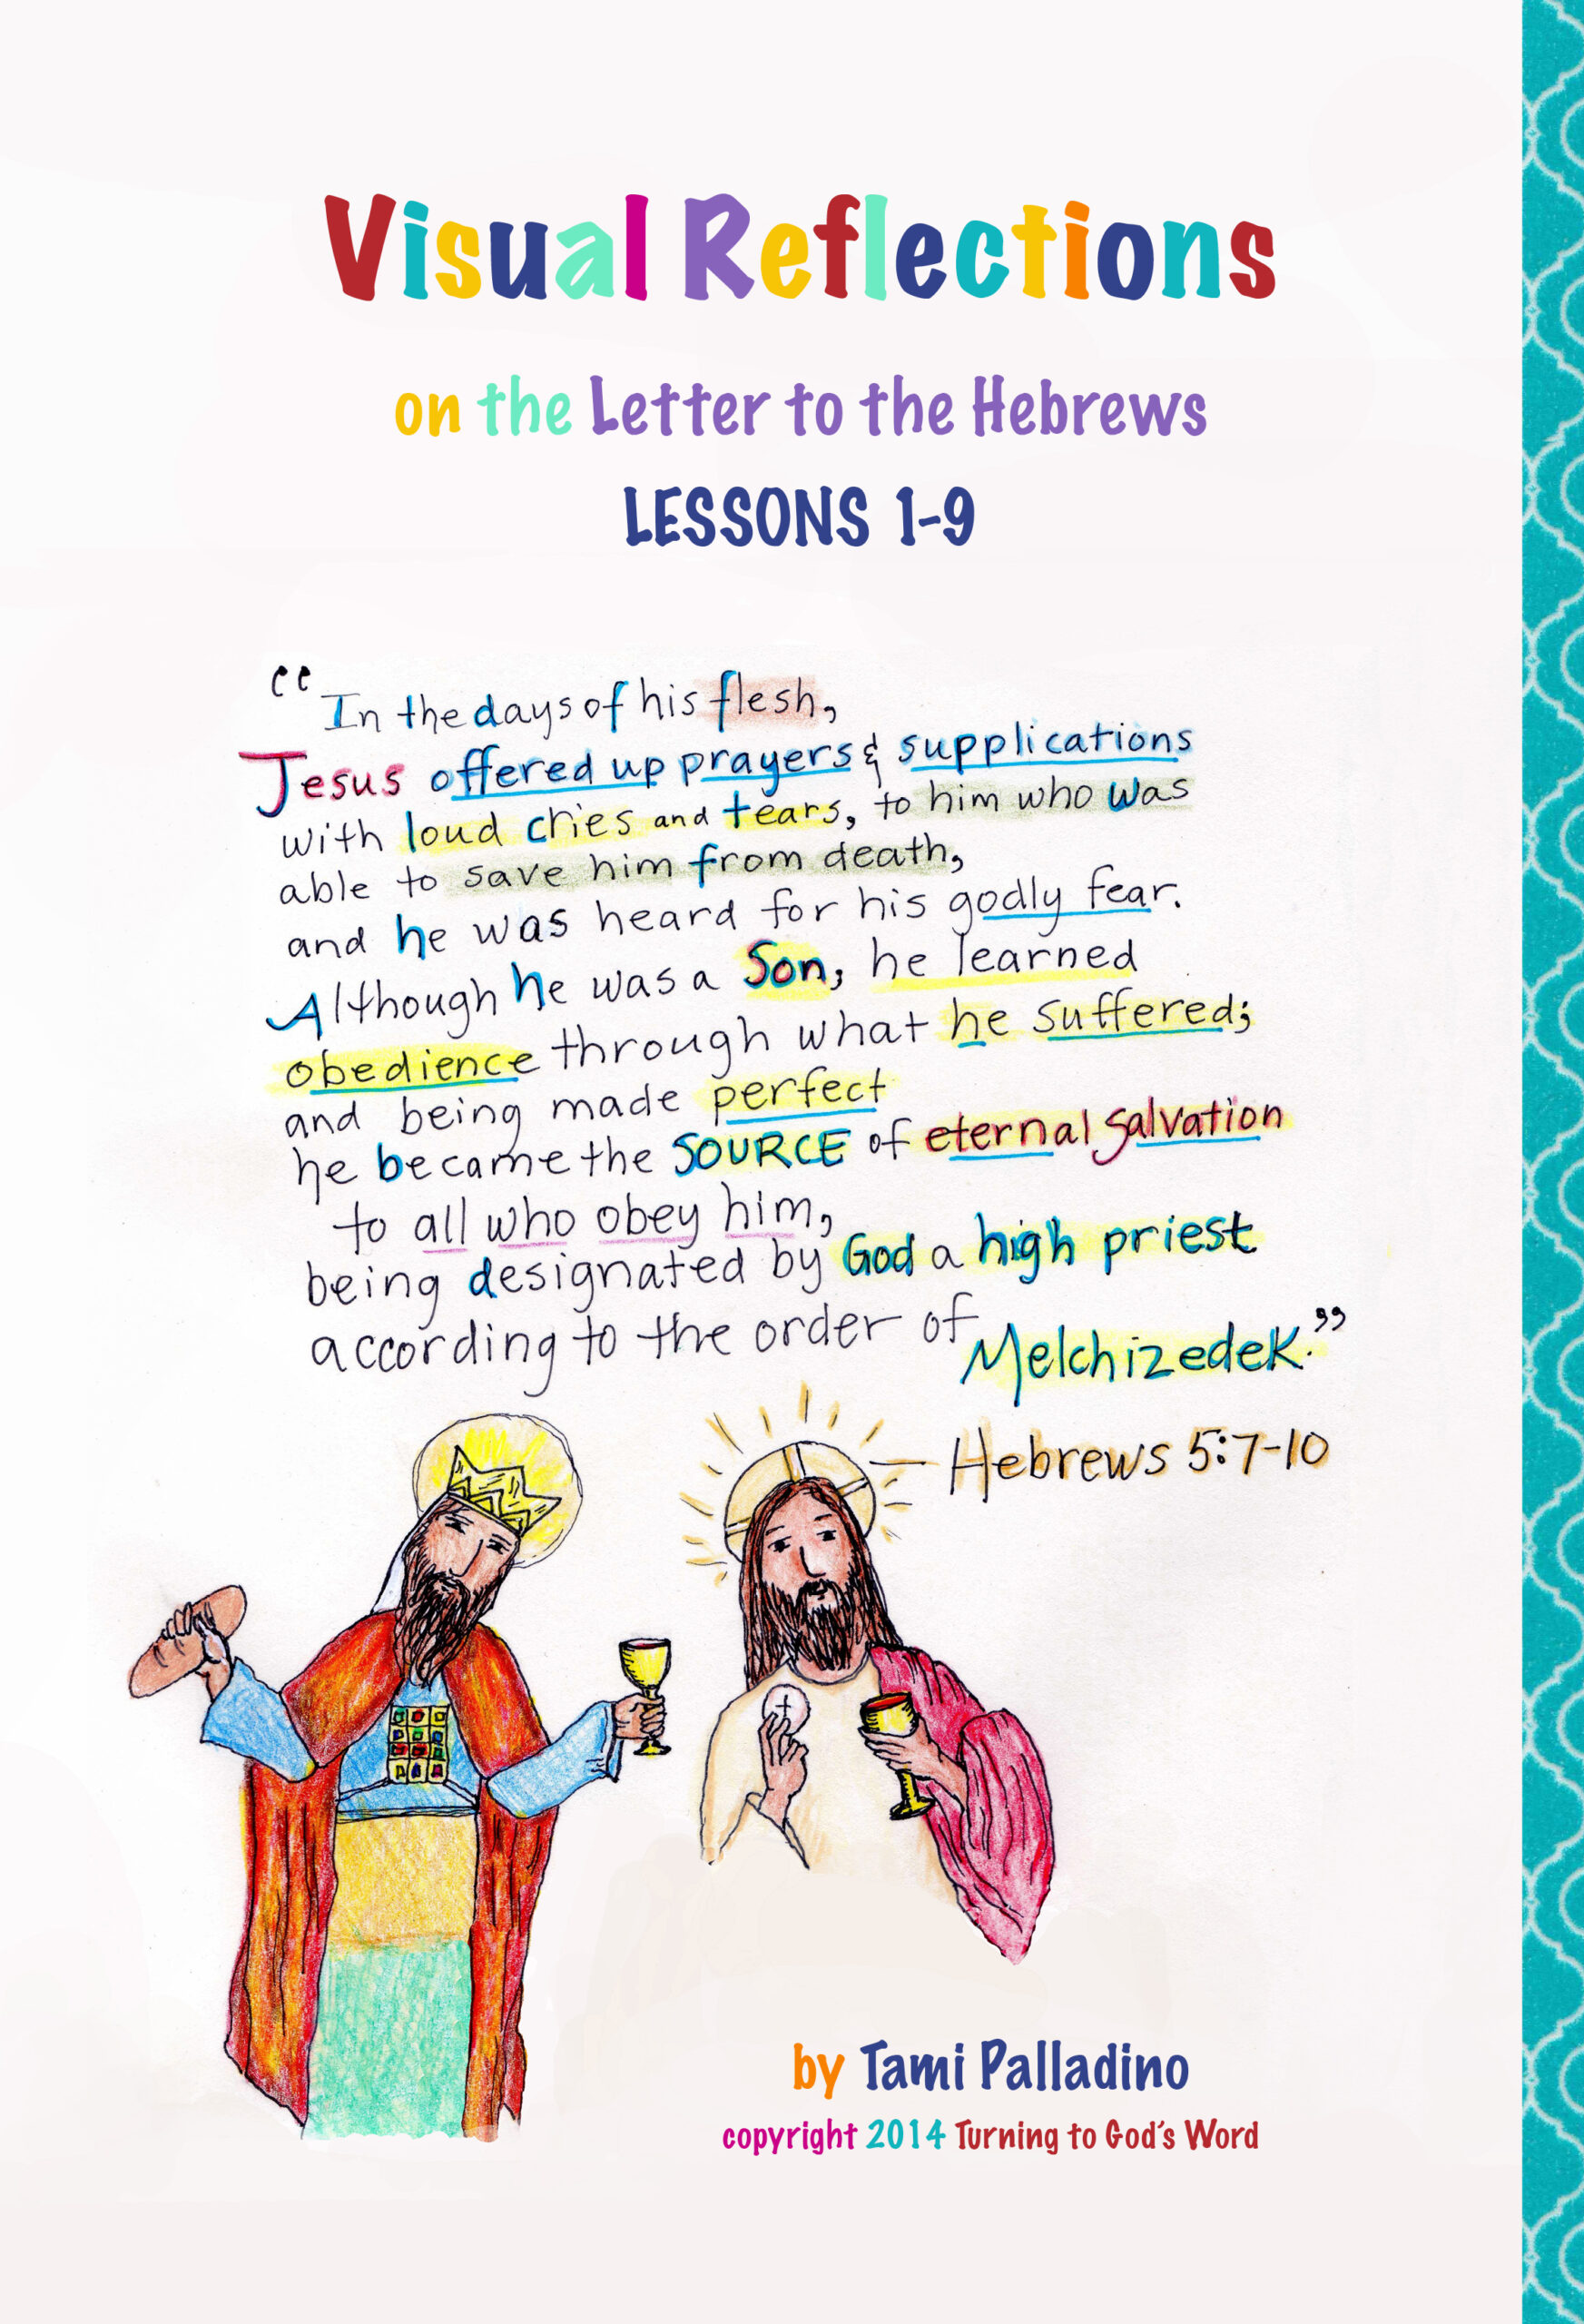 Visual Reflections
on the Letter to the Hebrews
LESSONS 1-9
“In the days of his flesh,
Jesus offered up prayers & supplications
with loud cries and tears, to him who was
able to save him from death,
and he was heard for his godly fear.
Although he was a Son, he learned
obedience through what he suffered;
and being made perfect
he became the SOURCE of eternal salvation
to all who obey him,
being designated by God a high priest
according to the order of Melchizedek.”
— Hebrews 5:7-10
by Tami Palladino
copyright 2014 Turning to God's Word